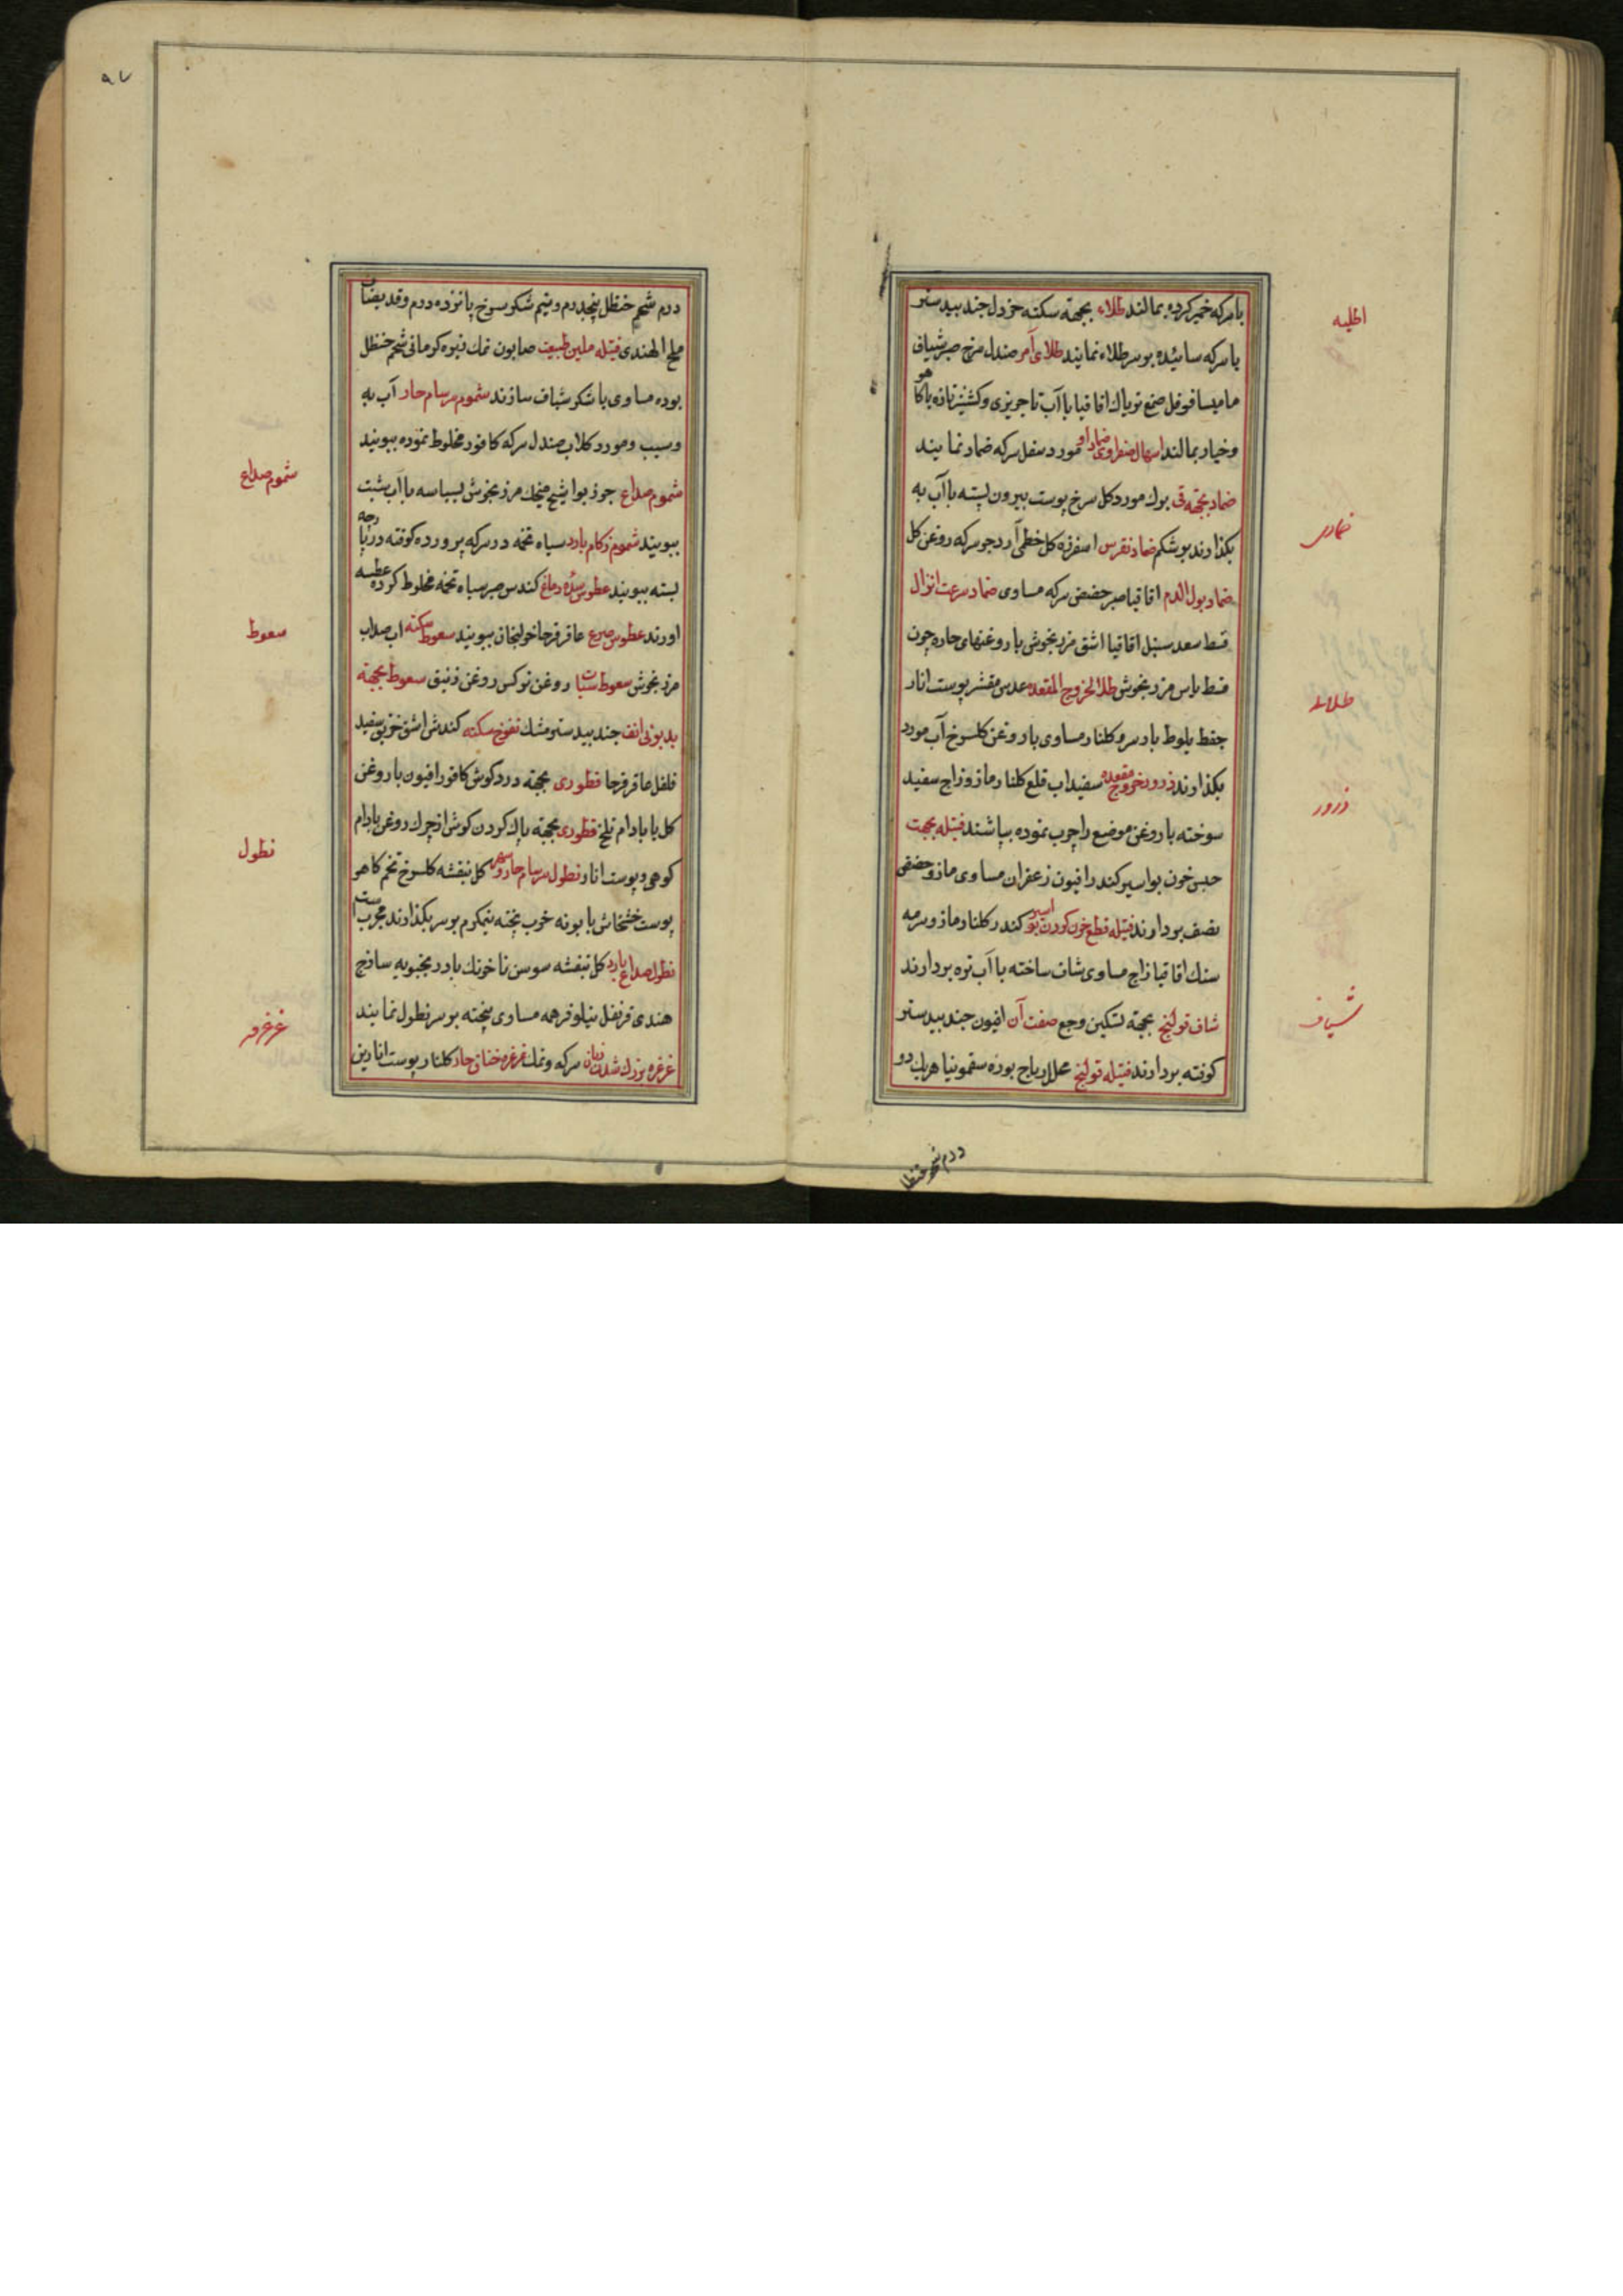 با سرکه خمیر کرده بمالند طلاء بجهته سکته خردل جند بیدستر
با سرکه سائیده بر سر طلاء نمایند طلای آمر صندل سرخ صبر شیاف
مامیسا فوفل صمغ تریاك اقاقیا با آب تاجریزی و کشنیز تازه یا کاهو
و خیار بمالند اسهال صفراوی ضماد او مورد سفل سرکه ضماد نمایند
ضماد بجهته قی بوك مورد کل سرخ پوست بیرون پسته با آب به
بکذارند بر شکم ضماد نقرس اسفرزه کل خطمی آرد جو سرکه روغن کل
ضماد بول الدم اقاقیا صبر حضض سرکه مساوی ضماد سرعت انزال
قسط سعد سنبل اقاقیا اشق مرزنجوش با روغنهای حاره چون
قسط یاس مرزنجوش طلا لخروج المقعده عدس مقشر پوست انار
جفط بلوط باد سرو کلنار مساوی با روغن کلسرخ آب مورد
بکذارند ذرور خروج مقعده سفیداب قلع کلنار مازو زاج سفید
سوخته با روغن موضع را چرب نموده بپاشند فتیله بجهت
حبس خون بواسیر کندر افیون زعفران مساوی مازو حضض
نصف بردارند فتیله قطع خون کردن بواسیر کندر کلنار مازو سرمه
سنك اقاقیا زاج مساوی شاف ساخته با آب تره بردارند
شاف قولنج بجهته تسکین وجع صفت آن افیون جند بیدستر
کوفته بردارند فتیله قولنج محلل ریاح بوره سقمونیا هریك دو
درم شحم حنظل
اطلیه
ضماد
طلاء
ذرور
شیاف
۹۷
درم شحم حنظل پنجدرم و نیم شکر سرخ پانزده درم و قد یضاف
ملح الهندی فتیله ملین طبیعت صابون نمك نبوه کرمانی شحم حنظل
بوره مساوی با شکر شیاف سازند شموم سرسام حار آب به
و سیب و مورد کلاب صندل سرکه کافور مخلوط نموده ببویند
شموم صداع جوز بوا شیح میخك مرزنجوش بسباسه با آب شبت
ببویند شموم زکام بارد سیاه تخمه در سرکه پرورده کوفته در پارچه
بسته ببویند عطوس سده دماغ کندس صبر سیاه تخمه مخلوط کرده عطسه
اورند عطوس صرع عاقرقرحا خولنجان ببویند سعوط سکته اب صداب
مرزنجوش سعوط سبات روغن نرکس روغن زنبق سعوط بجهته
بدبوئی انف جند بیدستر مشك نفوخ سکته کندش اشق خربق سفید
فلفل عاقرقرحا قطوری بجهته درد کوش کافور افیون با روغن
کل یا بادام تلخ قطوری بجهته پاك کردن کوش از چرك روغن بادام
کوهی و پوست انار نطول سرسام حار و سهر کل بنفشه کلسرخ تخم کاهو
پوست خشخاش بابونه خوب پخته نیمکرم بر سر بکذارند مجرب است
نطول صداع بارد کل بنفشه سوسن ناخونك بادرنجبویه ساذج
هندی قرنفل نیلوفر همه مساوی پخته بر سر نطول نمایند
غرغره بزرك شدن زبان سرکه و نمك غرغره خناق حار کلنار پوست انارین
شموم صداع
سعوط
نطول
غرغره